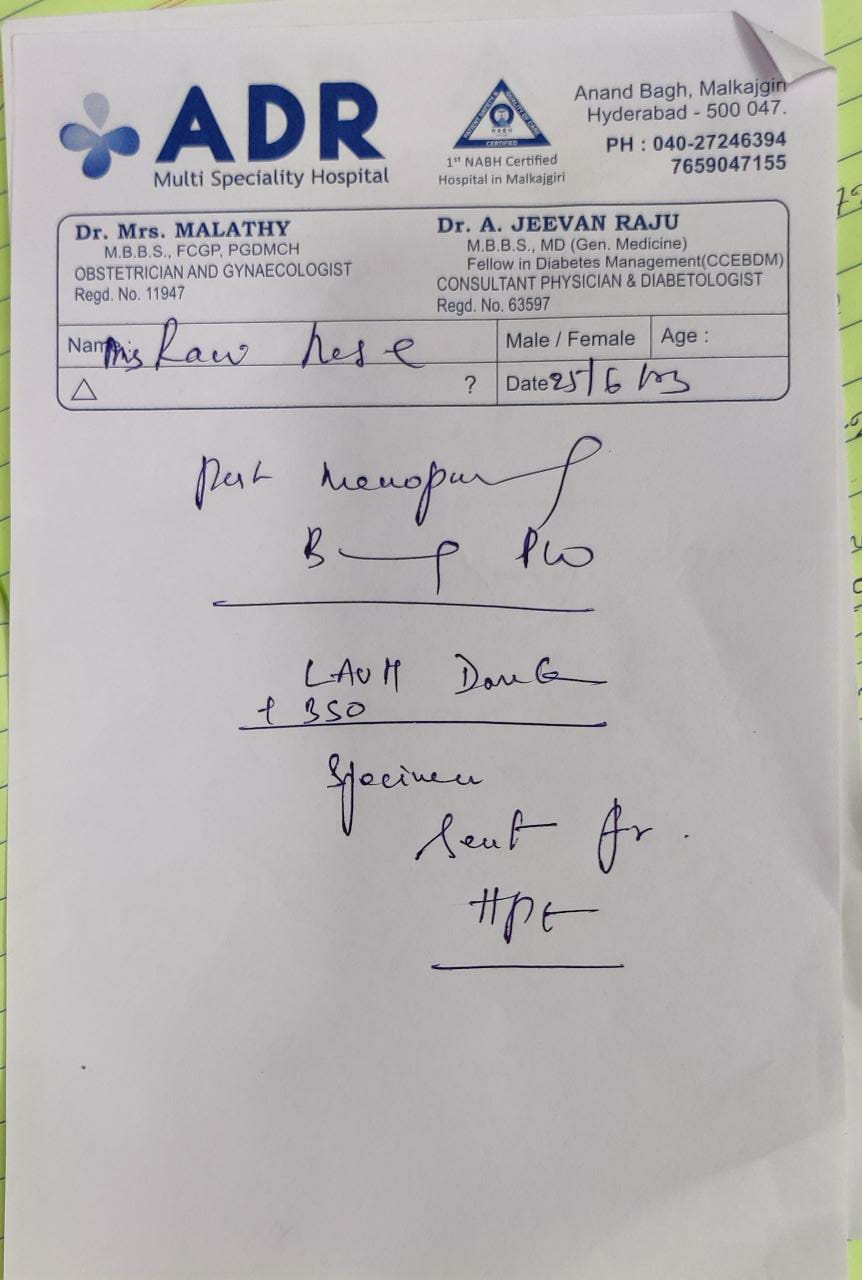 ADR
Multi Speciality Hospital
NABH
CERTIFIED
1st NABH Certified
Hospital in Malkajgiri
Anand Bagh, Malkajgiri
Hyderabad - 500 047.
PH : 040-27246394
7659047155
Dr. Mrs. MALATHY
M.B.B.S., FCGP, PGDMCH
OBSTETRICIAN AND GYNAECOLOGIST
Regd. No. 11947
Dr. A. JEEVAN RAJU
M.B.B.S., MD (Gen. Medicine)
Fellow in Diabetes Management(CCEBDM)
CONSULTANT PHYSICIAN & DIABETOLOGIST
Regd. No. 63597
Name
Male / Female
Age :
△ ?
Date 25/6
Post Menopaus
B PV
LAVH Done
+ BSO
Specimen
Sent for
HPE